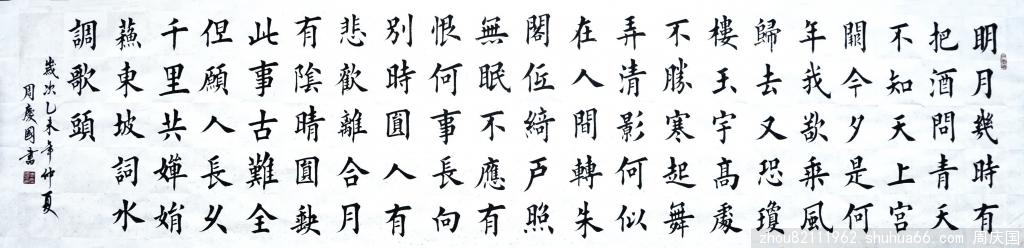 明月幾時有
把酒問青天
不知天上宮
闕今夕是何
年我欲乘風
歸去又恐瓊
樓玉宇高處
不勝寒起舞
弄清影何似
在人間轉朱
閣低綺戶照
無眠不應有
恨何事長向
別時圓人有
悲歡離合月
有陰晴圓缺
此事古難全
但願人長久
千里共嬋娟
蘇東坡詞水
調歌頭
歲次乙未年仲夏
周慶國書
zhou82111962.shuhua66.com 周庆国